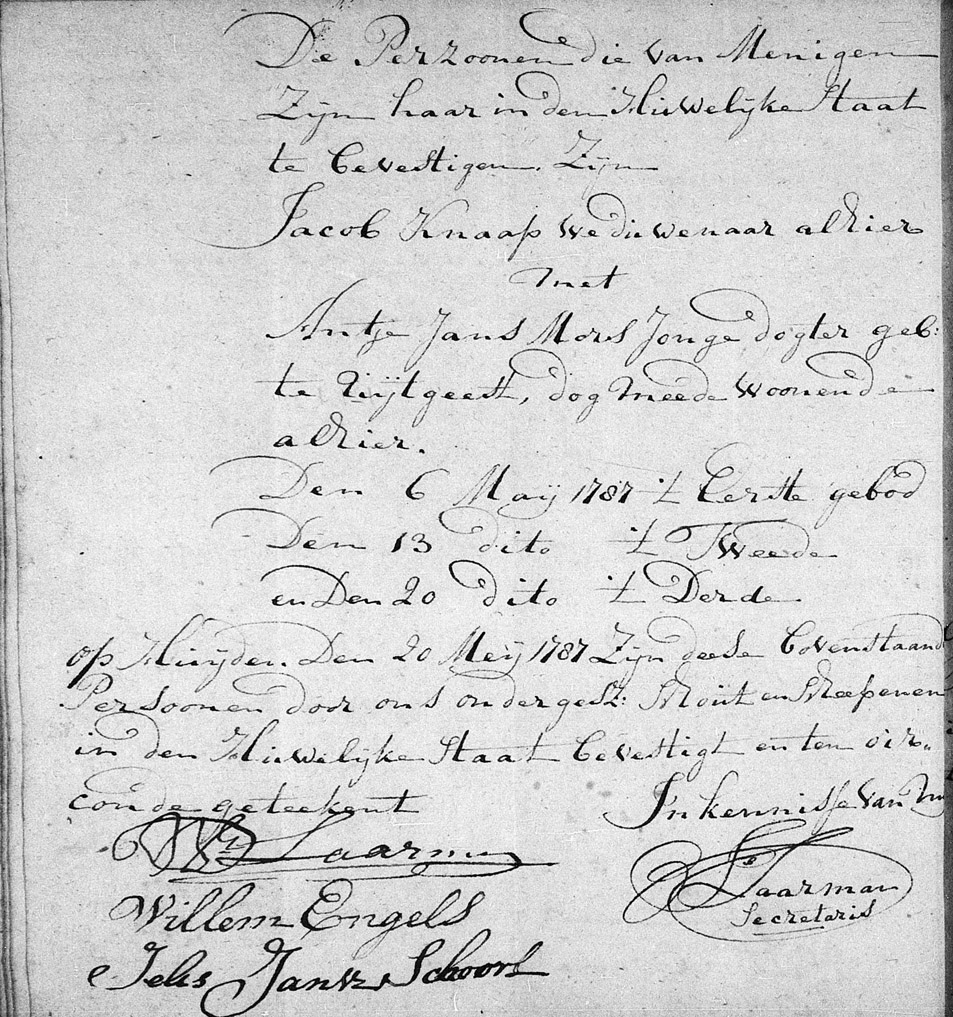 De Perzoonen die van Menigen
Zijn haar in den Huwelijke Staat
te bevestigen. Zijn
Jacob Knaap weduwenaar alhier
met
Antje Jans Mors Jonge dogter geb:
te Uijtgeest, dog meede woonende
alhier.
Den 6 Maij 1787 't Eerste gebod
Den 13 dito 't Tweede
en Den 20 dito 't Derde
op Huijden Den 20 Meij 1787 Zijn deese bovenstaand
Persoonen door ons ondergesz: Schout en Scheepenen
in den Huwelijke Staat bevestigt en ten oir„
conde geteekent
In kennisse van m
Laarman
Willem Engels
Secretaris
Jansz Schoorl